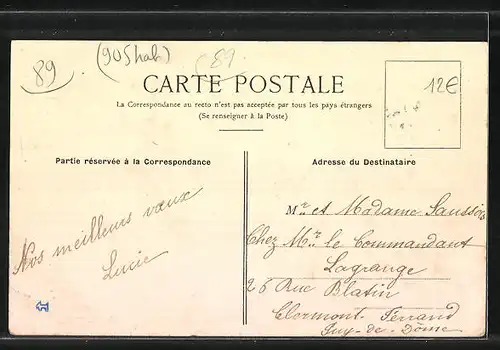 89
(905 hab)
89
CARTE POSTALE
12€
La Correspondance au recto n'est pas acceptée par tous les pays étrangers
(Se renseigner à la Poste)
Partie réservée à la Correspondance
Nos meilleurs vœux
Lucie
Adresse du Destinataire
Mr et Madame
Chez Mr le Commandant
Lagrange
26 Rue Blatin
Clermont-Ferrand
Puy-de-Dôme